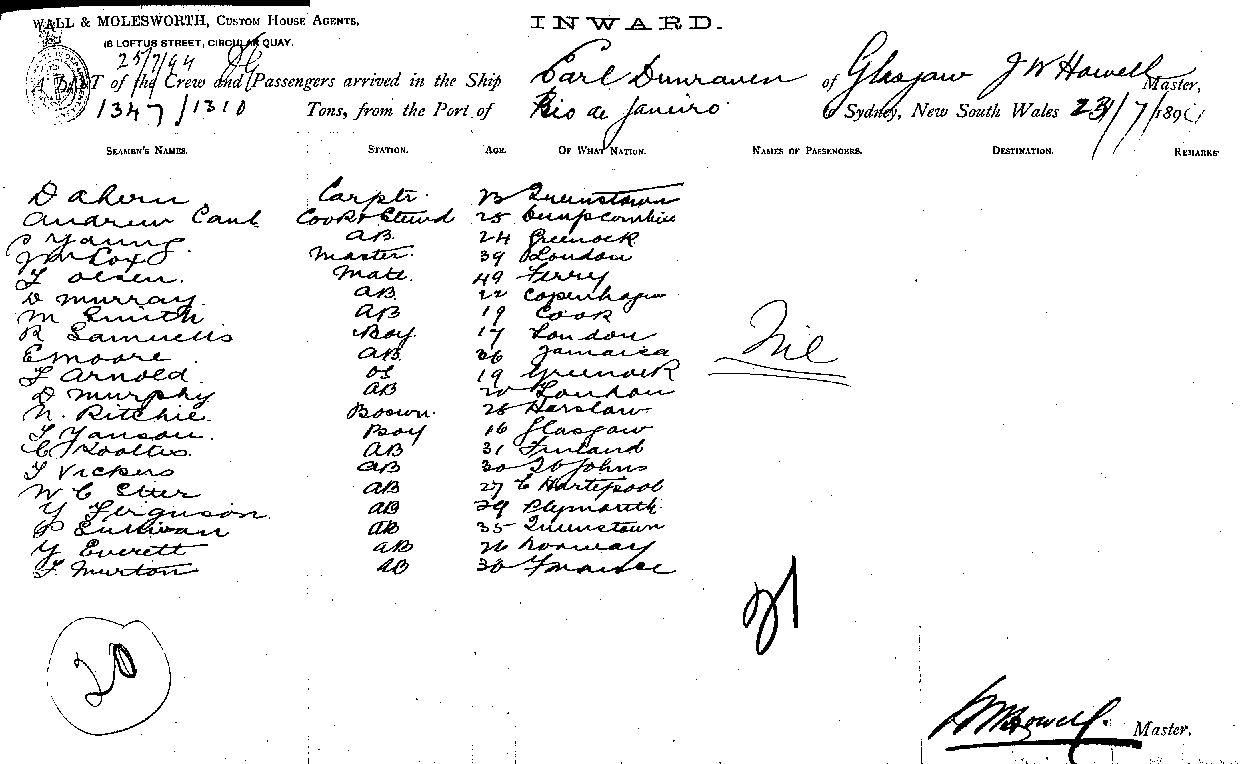 WALL & MOLESWORTH, CUSTOM HOUSE AGENTS,
INWARD.
16 LOFTUS STREET, CIRCULAR QUAY.
25/7/94
A LIST of the Crew and Passengers arrived in the Ship Earl Dunraven of Glasgow J W Howell Master,
1347/1310 Tons, from the Port of Rio de Janeiro to Sydney, New South Wales 23/7/189
SEAMEN'S NAMES. STATION. AGE. OF WHAT NATION. NAMES OF PASSENGERS. DESTINATION. REMARKS
D Ahern Carptr. Queenstown
Andrew Cook & Stewd 25
Young AB 24 Greenock
Cox Master 39 London
Olsen. Mate 49 Ferry
D Murray. AB 22 Copenhagen
M Smith AB 19 Cook
R Samuells Boy 17 London
E Moore AB 36 Jamaica
Nil
Arnold. OS 19 Greenock
D Murphy AB 20 London
N. Ritchie. Boswn. 28
Yanson. Boy 16 Glasgow
AB 31 Finland
Vickers AB 30 St Johns
W C Etter AB 27 Hartepool
Y Ferguson AB 29 Plymouth
Sullivan AB 35 Queenstown
Y Everett AB 26 Norway
Murton AB 30 France
21
20
Howell. Master.